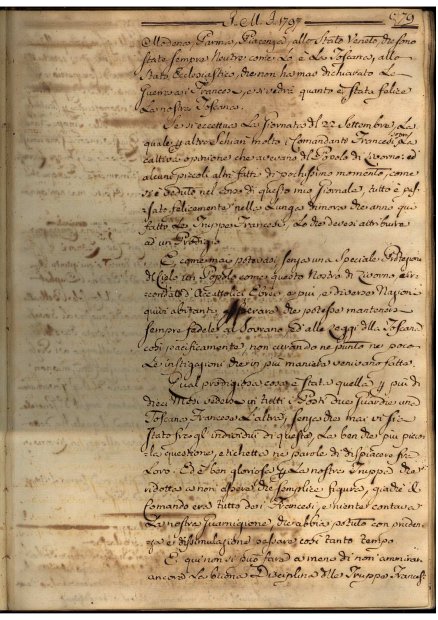 J. M. J. 1797 579
Modena, Parma, Piacenza, allo Stato Veneto, che sono
state sempre Neutre come Lo è La Toscana, allo
Stato Ecclesiastico, che non ha mai dichiarato La
Guerra ai Francesi, e si vedrà quanto è stata felice
La nostra Toscana.
Se si eccettua La Giornata dl 22 Settembre, La
quale altro Schiari molto i Comandanti Francesi
cattiva opinione che avevano del Popolo di Livorno, ed
alcuni piccoli altri fatti di pochissimo momento, come
si è veduto nel Corso di questo mio Giornale, tutto è pas
sato felicemente nella Lunga dimora che anno qui
fatto Le Truppe Francesi, Lo che devesi attribuire
ad un Prodigio
E come mai potevasi senza una Speciale Protezione
di Cielo un Popolo come questo Nostro di Livorno, cir
condato d'Acattolici Ebrei, e più, e diverse Nazioni
quivi abitanti, sperare che potesse mantenersi
sempre fedele al Sovrano, ed alle Leggi dlla Toscana
così pacificamente, non curando ne punto ne poco
Le instigazioni che in più maniere venivano fatte.
Qual prodigiosa cosa è stata quella più di
dieci Mesi vedere in tutti i Posti due Guardie una
Toscana Francese L'altra, senza che mai vi sia
stato fra gl'individui di queste, La ben che più picco
la questione, etichetta ne parole di dispiacere fra
Loro. Ed è ben gloriosa La nostra Truppa che
ridotta a non operare che semplice figura, quale il
Comando era tutto dai Francesi, e niente contava
La nostra Guarnigione, che abbia potuto con pruden
za e dissimulazione passare così tanto tempo
E qui non si può fare a meno di non ammirar
ancora La buona Disciplina dlle Truppe Francesi